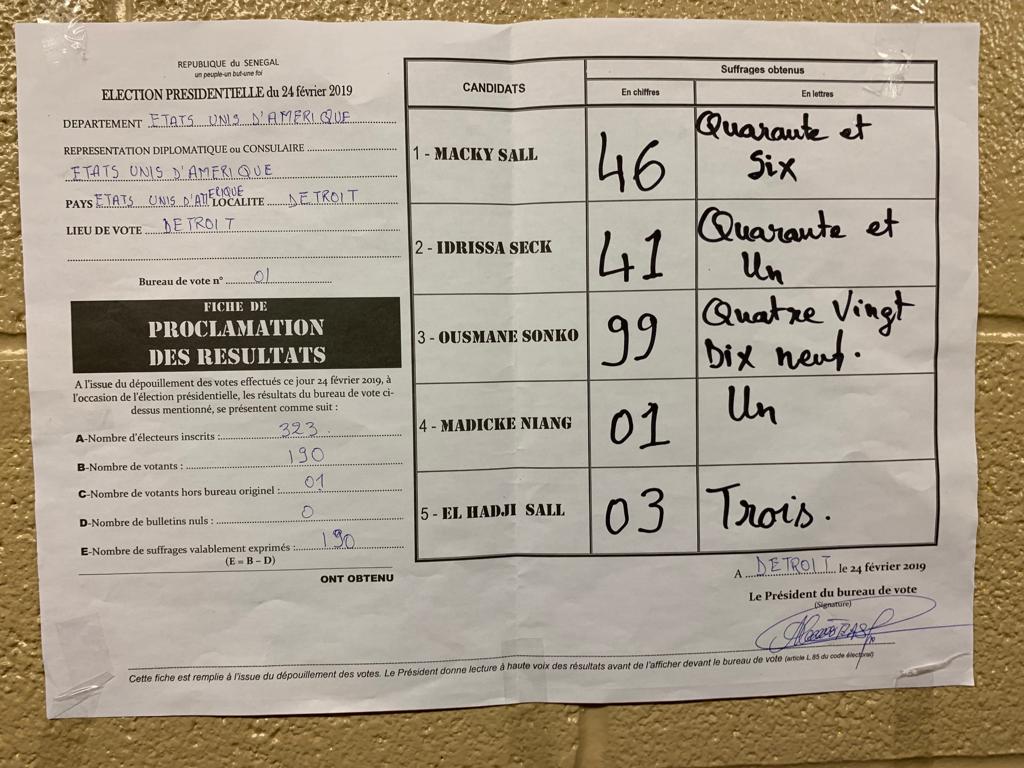 REPUBLIQUE du SENEGAL
un peuple-un but-une foi
ELECTION PRESIDENTIELLE du 24 février 2019
DEPARTEMENT ETATS UNIS D'AMERIQUE
REPRESENTATION DIPLOMATIQUE ou CONSULAIRE
ETATS UNIS D'AMERIQUE
PAYS ETATS UNIS D'AMERIQUE LOCALITE DETROIT
LIEU DE VOTE DETROIT
Bureau de vote n° 01
FICHE DE
PROCLAMATION
DES RESULTATS
A l'issue du dépouillement des votes effectués ce jour 24 février 2019, à
l'occasion de l'élection présidentielle, les résultats du bureau de vote ci-
dessus mentionné, se présentent comme suit :
A-Nombre d'électeurs inscrits : 323
B-Nombre de votants : 190
C-Nombre de votants hors bureau originel : 01
D-Nombre de bulletins nuls : 0
E-Nombre de suffrages valablement exprimés : 190
(E = B – D)
ONT OBTENU
CANDIDATS
Suffrages obtenus
En chiffres
En lettres
1 - MACKY SALL
46
Quarante et
Six
2 - IDRISSA SECK
41
Quarante et
Un
3 - OUSMANE SONKO
99
Quatre Vingt
Dix neuf.
4 - MADICKE NIANG
01
Un
5 - EL HADJI SALL
03
Trois.
A DETROIT le 24 février 2019
Le Président du bureau de vote
(Signature)
Cette fiche est remplie à l'issue du dépouillement des votes. Le Président donne lecture à haute voix des résultats avant de l'afficher devant le bureau de vote (article L.85 du code électoral)